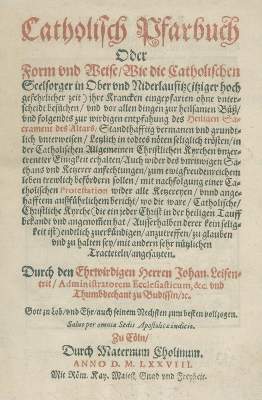 Catholisch Pfarbuch
Oder
Form vnd Weise/ Wie die Catholischen
Seelsorger in Ober vnd Niderlausitz (itziger hoch
gefehrlicher zeit) ihre Krancken eingepfarten ohne vnter-
scheidt besuchen/ vnd vor allen dingen zur heilsamen Buß/
vnd folgendts zur wirdigen empfahung des Heiligen Sa-
crament des Altars/ Standthafftig vermanen vnd gründt-
lich vnterweisen/ Letzlich in todtes nöten seliglich trösten/ in
der Catholischen Allgemeinen Christlichen Kyrchen vnzer-
trenter Einigkeit erhalten/ Auch wider des vnrewigen Sa-
thans vnd Ketzerer anfechtungen/ zum ewigfreudenreichem
leben trewlich befördern sollen/ mit nachfolgung einer Ca-
tholischen Protestation wider alle Ketzereyen/ vnnd ange-
hafftem außführlichem bericht/ wo die ware/ Catholische/
Christliche Kyrche (Die ein jeder Christ in der heiligen Tauff
bekandt vnd angenommen hat/ Ausserhalben derer kein selig-
keit ist) endtlich zuerkündigen/ anzutreffen/ zu glauben
vnd zu halten sey/ mit andern sehr nützlichen
Tractetein/ angehenckten.
Durch den Ehrwirdigen Herren Johan. Leisen-
trit/ Administratorem Ecclesiasticum, &c. vnd
Thumbdechant zu Budissin/ ꝛc.
Gott zu Lob/ vnd Ehr/ auch seinem Nechsten zum besten vollzogen.
Saluo per omnia Sedis Apostolicæ iudicio.
Zu Cöln/
Durch Maternum Cholinum.
ANNO D. M. LXXVIII.
Mit Röm. Kay. Maiest. Gnad vnd Freyheit.